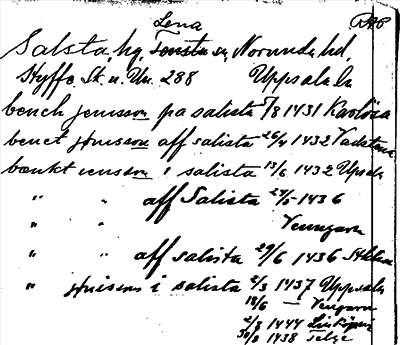 Lena
Salsta, hg, Tensta sn, Norunda hd,
Styffe, Sk. u. Un. 288 Uppsala ln
bench jensson pa salista 5/8 1431 Karlösa
benct jönsson aff salista 26/4 1432 Vadstena
bænkt iensson i salista 13/6 1432 Upsala
" " aff Salista 24/5 1436
Venngarn
" " aff salista 29/6 1436 Sthlm
" jönissons i salista 2/3 1437 Uppsala
18/6 — Venngarn
2/3 1444 Linköping
30/9 1438 Telge